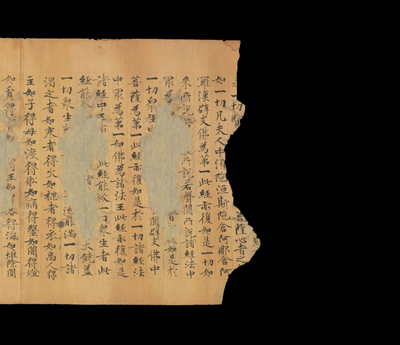 一切 菩薩心者之
如一切凡夫人中須陀洹斯陀含阿那含阿
羅漢辟支佛為第一此經亦復如是一切如
來所說 所說若聲聞所說諸經法中
最為 亦復如是於
一切眾生 聞辟支佛中
菩薩為第一此經亦復如是於一切諸經法
中最為第一如佛為諸法王此經亦復如是
諸經中王 此經能救一切眾生者此
經能令 大饒益
一切眾生 池能滿一切諸
渴乏者如寒者得火如裸者得衣如商人得
主如子得母如渡得船如病得醫如闇得燈
如貧得 得王如 客得海如炬除闇